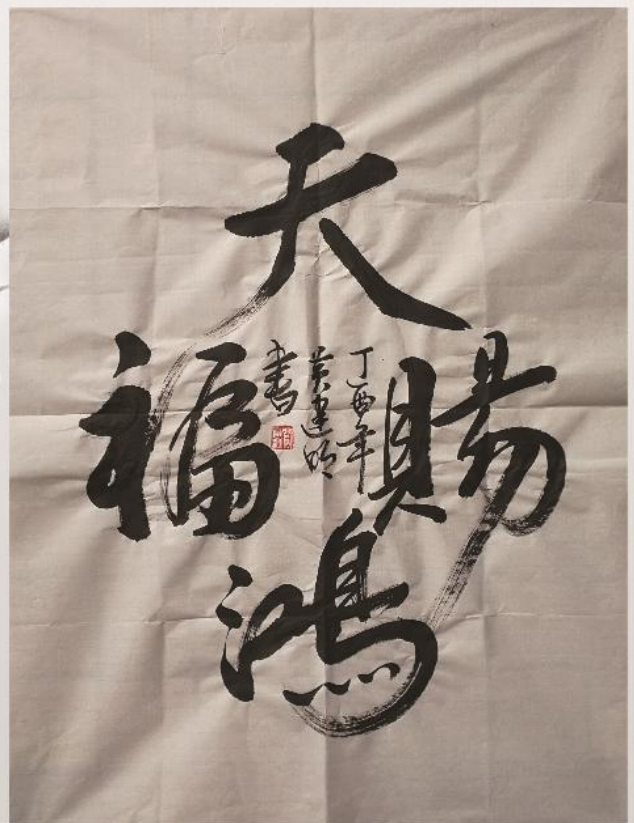 天
賜
鴻
福
丁酉年
黄建明
書